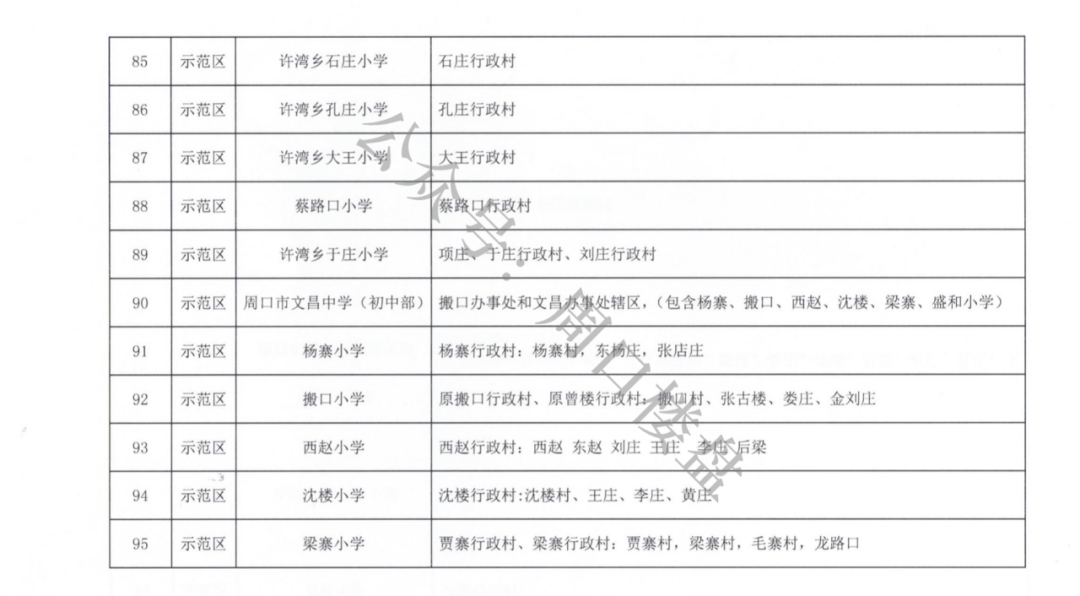 85 示范区 许湾乡石庄小学 石庄行政村
86 示范区 许湾乡孔庄小学 孔庄行政村
87 示范区 许湾乡大王小学 大王行政村
88 示范区 蔡路口小学 蔡路口行政村
89 示范区 许湾乡于庄小学 项庄、于庄行政村、刘庄行政村
90 示范区 周口市文昌中学（初中部） 搬口办事处和文昌办事处辖区，（包含杨寨、搬口、西赵、沈楼、梁寨、盛和小学）
91 示范区 杨寨小学 杨寨行政村：杨寨村，东杨庄，张店庄
92 示范区 搬口小学 原搬口行政村、原曾楼行政村：搬口村、张古楼、娄庄、金刘庄
93 示范区 西赵小学 西赵行政村：西赵 东赵 刘庄 王庄 李庄 后梁
94 示范区 沈楼小学 沈楼行政村:沈楼村、王庄、李庄、黄庄、
95 示范区 梁寨小学 贾寨行政村、梁寨行政村：贾寨村，梁寨村，毛寨村，龙路口
公众号：周口楼盘